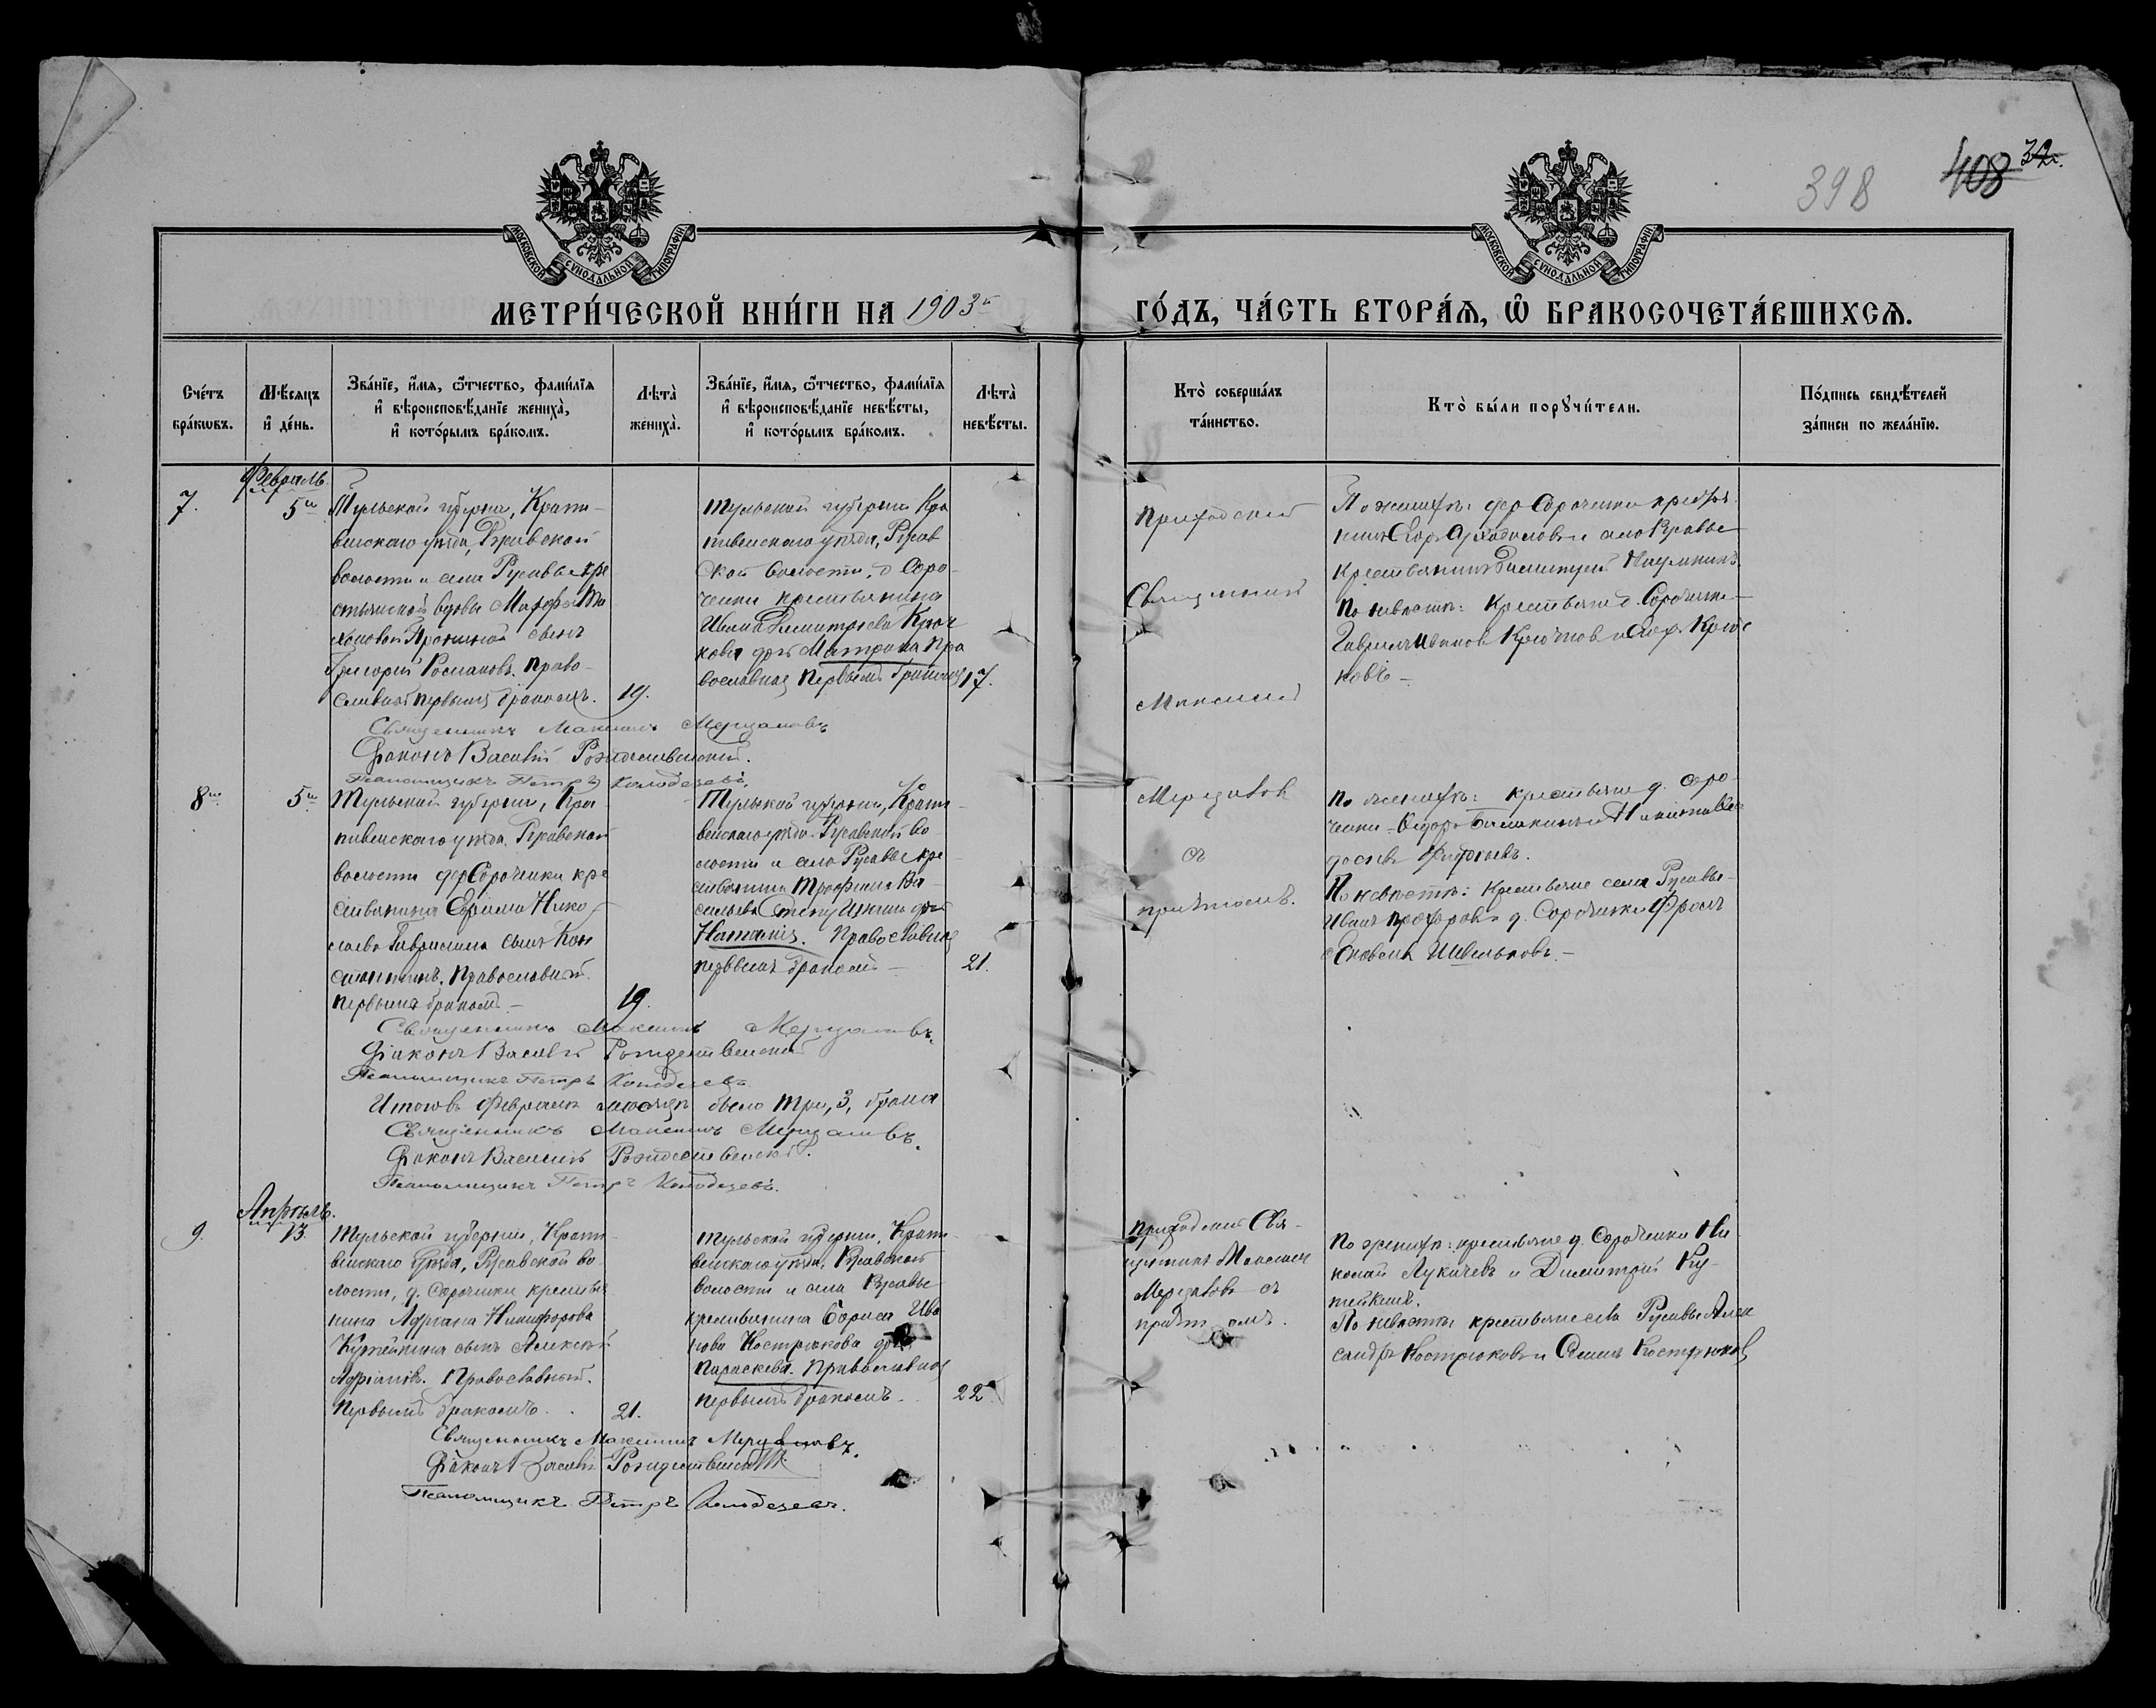 398
408
32.
МОСКОВСКОЙ СУНОДАЛЬНОЙ ТИПОГРАФІИ
МОСКОВСКОЙ СУНОДАЛЬНОЙ ТИПОГРАФІИ
МЕТРИ́ЧЕСКОЙ КНИ́ГИ НА 1903й
ГО́ДЪ, ЧА́СТЬ ВТОРА́Я, Ѽ БРАКОСОЧЕТА́ВШИХСЯ.
Сче́тъ бра́кѡвъ.
Мѣ́сяцъ и҆ де́нь.
Зва́нїе, и҆́мя, ѻ҆́тчество, фами́лїя и҆ вѣроисповѣ́данїе жениха̀, и҆ кото́рымъ бра́комъ.
Лѣта̀ жениха̀.
Зва́нїе, и҆́мя, ѻ҆́тчество, фами́лїя и҆ вѣроисповѣ́данїе невѣ́сты, и҆ кото́рымъ бра́комъ.
Лѣта̀ невѣ́сты.
Кто̀ соверша́лъ та́инство.
Кто̀ бы́ли порꙋчи́тели.
По́дпись свидѣ́телей за́писи по жела́нїю.
Февраль.
7.
5й
Тульской губерніи, Крапи-
венскаго уѣзда, Русавской
волости и села Русавы кре
стьянской вдовы Марфы
Прониной сынъ
Григорій Космановъ. Право-
славный первымъ бракомъ.
19.
Тульской губерніи Кра
пивенскаго уѣзда, Русав
ской волости, д Соро-
чинки крестьянина
Ивана Димитріева Крюч
кова дочь Матрона Пра
вославная первымъ бракомъ
17.
Приходскій
Священникъ
Максимъ
Мерцаловъ
съ
причтомъ.
По женихѣ: дер Сорочинки крестья
нинъ Егоръ и села Русавы
Крестьянинъ Димитрій Наумкинъ.
По невѣстѣ: Крестьяне д. Сорочинки
Гаврилъ Ивановъ Крючковъ и Крюч
ковъ –
Священникъ Максимъ Мерцаловъ
Діаконъ Василій Рождественскій.
Псаломщикъ Петръ Колодезевъ.
8й
5й
Тульской губерніи, Кра-
пивенскаго уѣзда, Русавской
волости дер Сорочинки кре
стьянина Ефрема Нико
лаева Гаврилина сынъ Кон
стантинъ. Православный.
первымъ бракомъ –
19.
Тульской губерніи, Крапи-
венскаго уѣзда Русавской во-
лости и села Русавы кре-
стьянина Трофима Ва-
сильева дочь
Наталія. Православная
первымъ бракомъ –
21.
По женихѣ: крестьяне д. Соро-
чинки Ѳедоръ и Никита
По невѣстѣ: Крестьяне села Русавы
Иванъ Прохоровъ и д. Сорочинки Фролъ
Священникъ Максимъ Мерцаловъ.
Діаконъ Василій Рождественскій
Псаломщикъ Петръ Колодезевъ
Итого въ Февралѣ мѣсяцѣ было три, 3, брака
Священникъ Максимъ Мерцаловъ.
Діаконъ Василій Рождественскій.
Псаломщикъ Петръ Колодезевъ.
Апрѣль.
9.
13.
Тульской губерніи, Крапи-
венскаго уѣзда, Русавской во-
лости, д. Сорочинки крестья
нина Адріана Никифорова
Кутейкина сынъ Алексѣй
Адріановъ. Православный.
Первымъ бракомъ.
21.
Тульской губерніи, Крапи-
венскаго уѣзда, Русавской
волости и села Русавы
крестьянина Бориса Ива
нова Кострюкова дочь
Параскева. Православная
первымъ бракомъ.
22
Приходскій Свя-
щенникъ Максимъ
Мерцаловъ съ
причтомъ.
По женихѣ: крестьяне д. Сорочинки Ни
колай Лукичевъ и Димитрій Ку-
тейкинъ.
По невѣстѣ: крестьяне села Русавы Алек
сандръ Кострюковъ и Семенъ Кострюковъ
Священникъ Максимъ Мерцаловъ.
Діаконъ Василій Рождественскій
Псаломщикъ Петръ Колодезевъ.